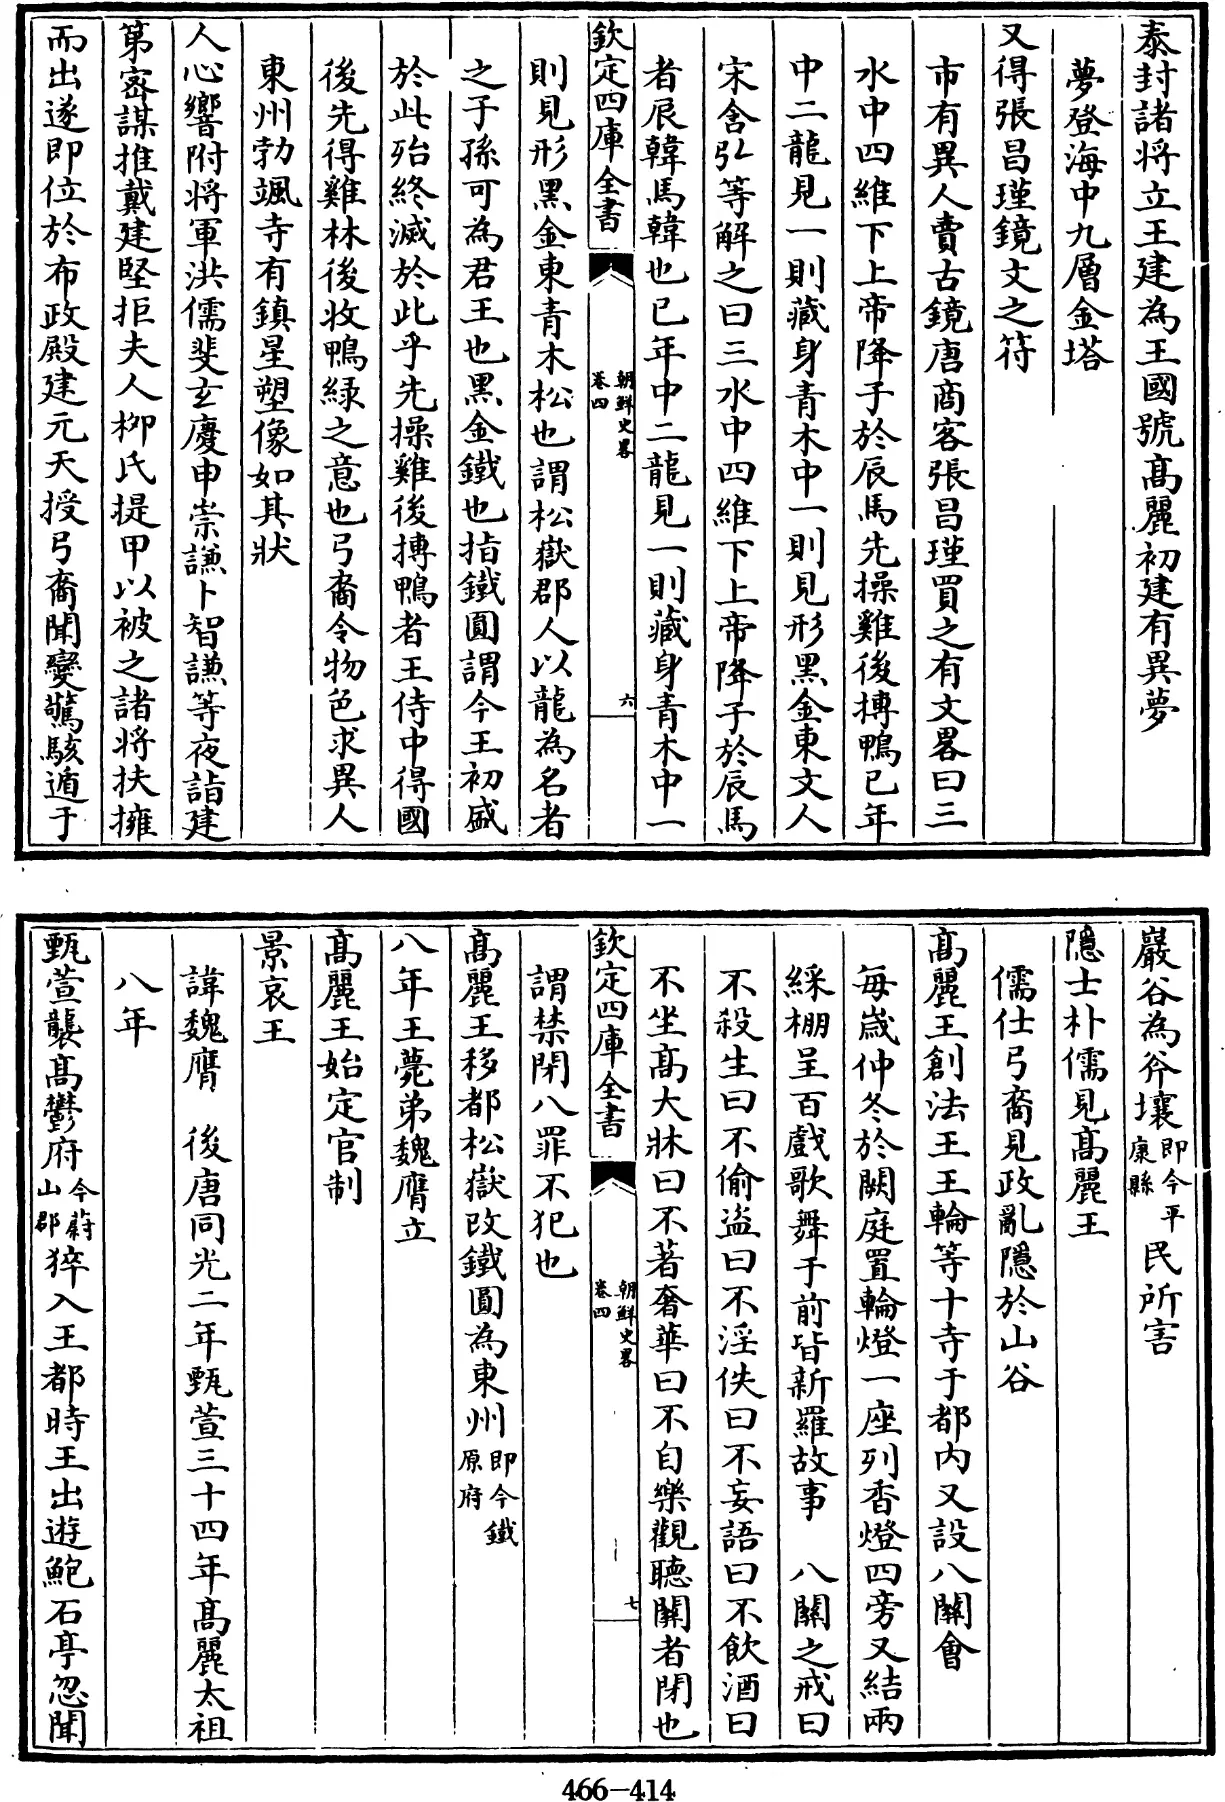 泰封諸將立王建為王國號髙麗初建有異夢
夢登海中九層金塔
又得張昌瑾鏡文之符
市有異人賣古鏡唐商客張昌瑾買之有文畧曰三
水中四維下上帝降子於辰馬先操雞後搏鴨巳年
中二龍見一則藏身青木中一則見形黑金東文人
宋含弘等解之曰三水中四維下上帝降子於辰馬
者辰韓馬韓也巳年中二龍見一則藏身青木中一
欽定四庫全書
朝鮮史畧
卷四
六
則見形黑金東青木松也謂松嶽郡人以龍為名者
之子孫可為君王也黑金鐵也指鐵圓謂今王初盛
於此殆終滅於此乎先操雞後搏鴨者王侍中得國
後先得雞林後收鴨緑之意也弓裔令物色求異人
東州勃颯寺有鎮星塑像如其狀
人心響附將軍洪儒裴玄慶申崇謙卜智謙等夜詣建
第密謀推戴建堅拒夫人柳氏提甲以被之諸將扶擁
而出遂即位於布政殿建元天授弓裔聞變驚駭遁于
巖谷為斧壤即今平康縣民所害
隱士朴儒見髙麗王
儒仕弓裔見政亂隱於山谷
髙麗王創法王王輪等十寺于都内又設八關會
每歳仲冬於闕庭置輪燈一座列香燈四旁又結兩
綵棚呈百戲歌舞于前皆新羅故事　八關之戒曰
不殺生曰不偷盗曰不淫佚曰不妄語曰不飲酒曰
不坐髙大牀曰不著奢華曰不自樂觀聽關者閉也
欽定四庫全書
朝鮮史畧
卷四
七
謂禁閉八罪不犯也
髙麗王移都松嶽改鐵圓為東州即今鐵原府
八年王薨弟魏膺立
髙麗王始定官制
景哀王
諱魏膺　後唐同光二年甄萱三十四年髙麗太祖
八年
甄萱襲髙鬱府今蔚山郡猝入王都時王出遊鮑石亭忽聞
466-414